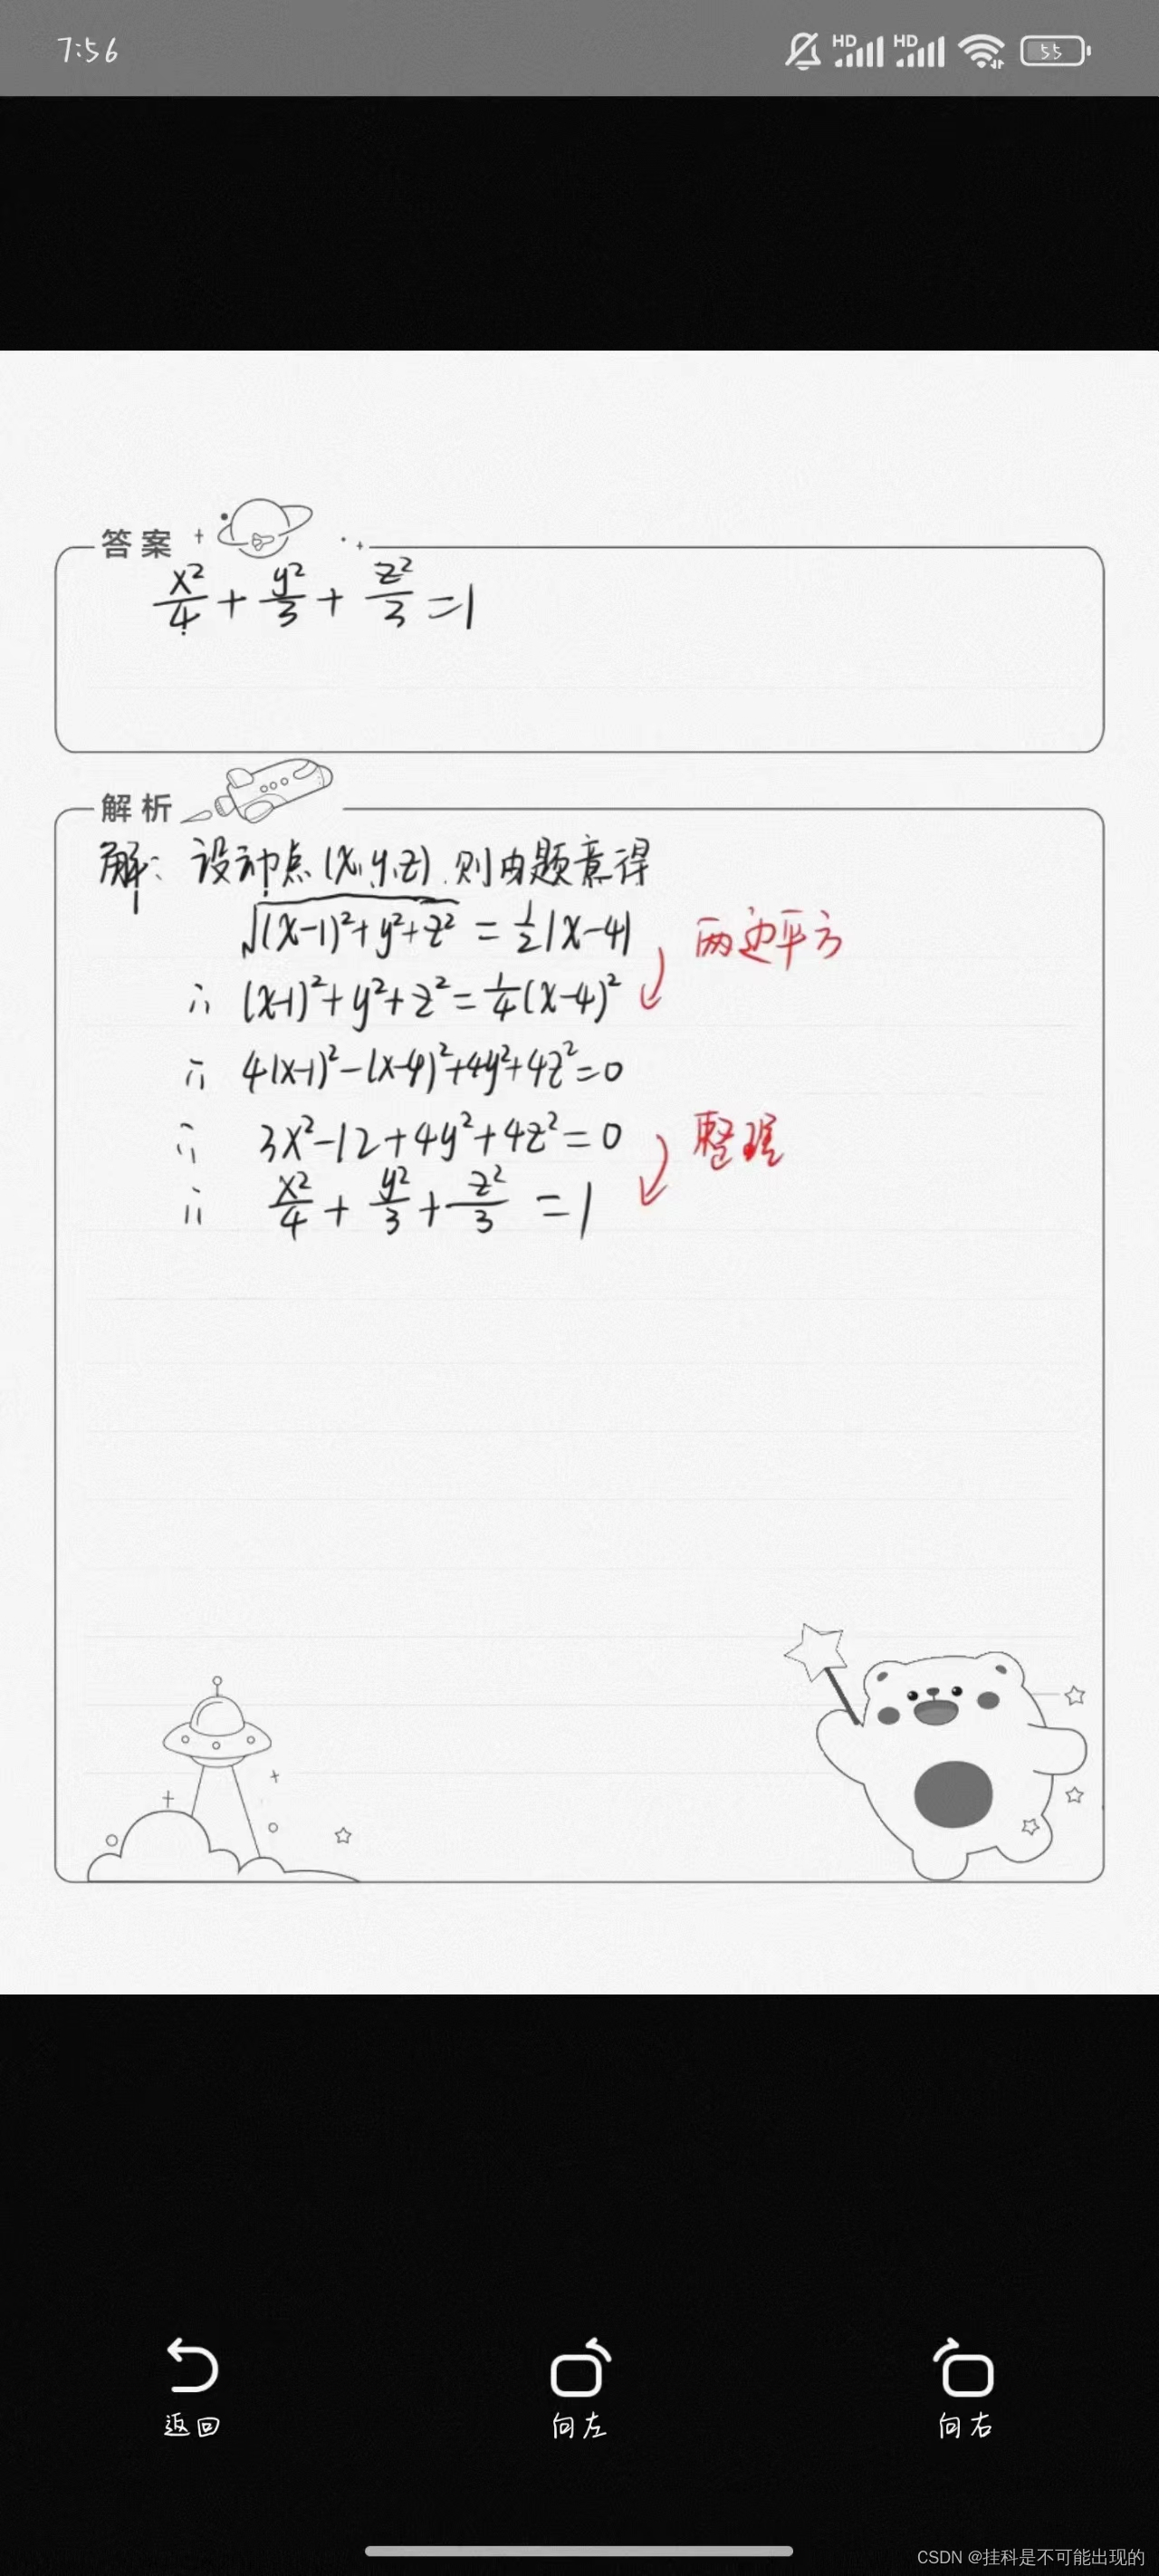 7:56
HD HD 55
答案
x²/4 + y²/3 + z²/3 =1
解析
解: 设动点(x,y,z).则由题意得
√((x-1)²+y²+z²) = 1/2|x-4| 两边平方
∴ (x-1)²+y²+z²=1/4(x-4)²
∴ 4(x-1)²-(x-4)²+4y²+4z²=0
∴ 3x²-12+4y²+4z²=0 整理
∴ x²/4 + y²/3 + z²/3 =1
返回 向左 向右
CSDN @挂科是不可能出现的